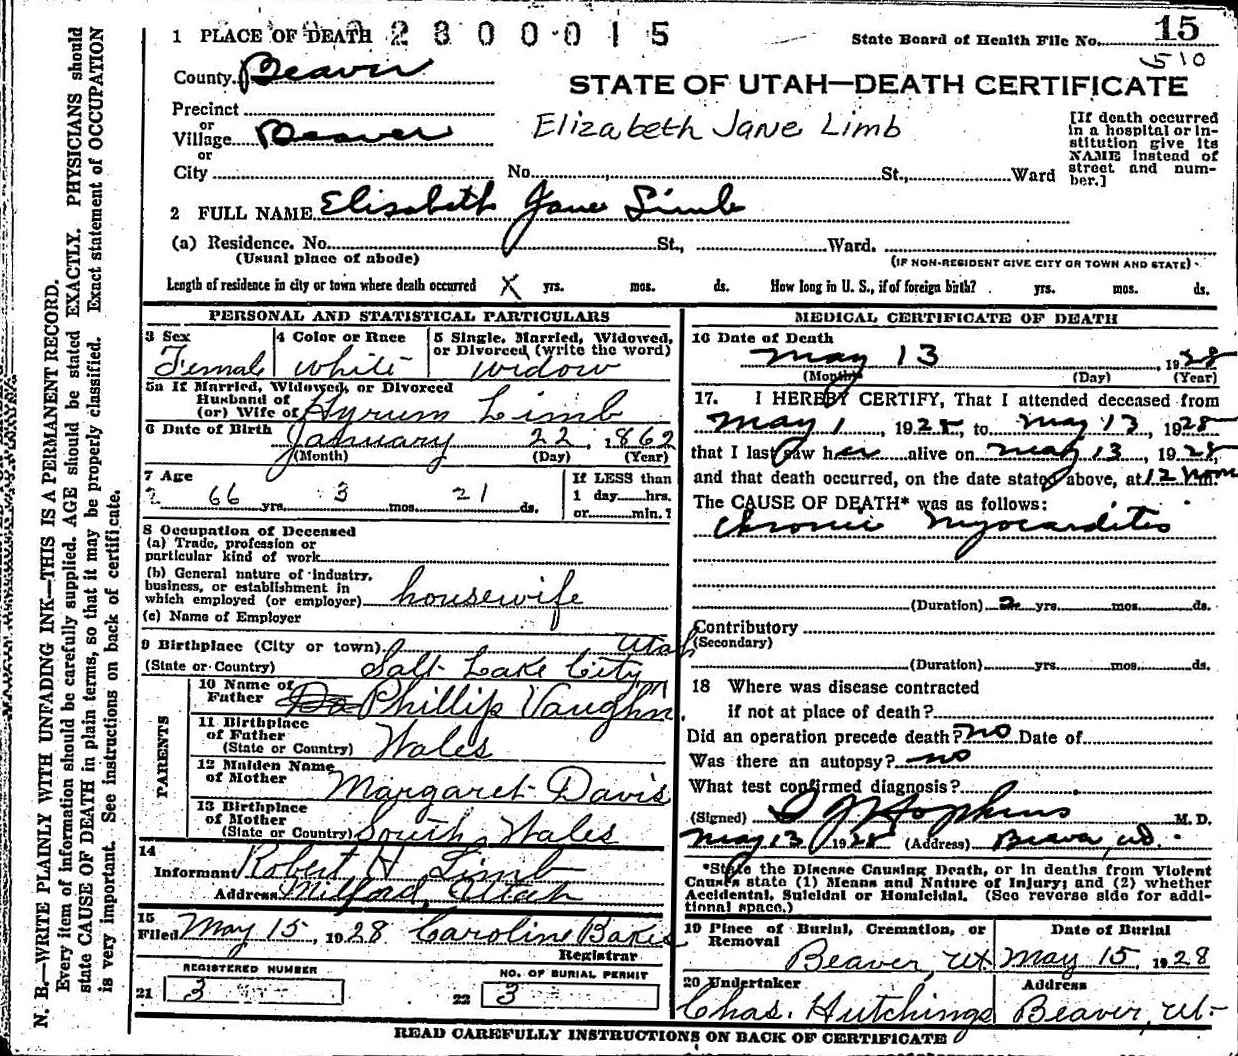 1 PLACE OF DEATH 2 8 0 0 0 1 5
State Board of Health File No. 15
510
County Beaver
STATE OF UTAH—DEATH CERTIFICATE
Precinct
or
Village Beaver
Elizabeth Jane Limb
[If death occurred in a hospital or institution give its NAME instead of street and number.]
or
City No. , St., Ward
2 FULL NAME Elisabeth Jane Limb
(a) Residence. No. St., Ward.
(Usual place of abode)
(IF NON-RESIDENT GIVE CITY OR TOWN AND STATE)
Length of residence in city or town where death occurred X yrs. mos. ds. How long in U. S., if of foreign birth? yrs. mos. ds.
PERSONAL AND STATISTICAL PARTICULARS
3 Sex
Female
4 Color or Race
white
5 Single, Married, Widowed,
or Divorced (write the word)
widow
5a If Married, Widowed, or Divorced
Husband of
(or) Wife of Hyrum Limb
6 Date of Birth January 22, 1862
(Month) (Day) (Year)
7 Age
66 yrs. 3 mos. 21 ds.
If LESS than
1 day hrs.
or min.?
8 Occupation of Deceased
(a) Trade, profession or
particular kind of work
(b) General nature of industry,
business, or establishment in
which employed (or employer) housewife
(c) Name of Employer
9 Birthplace (City or town) Utah
(State or Country) Salt Lake City
PARENTS
10 Name of
Father Phillip Vaughn
11 Birthplace
of Father
(State or Country) Wales
12 Maiden Name
of Mother Margaret Davis
13 Birthplace
of Mother
(State or Country) South Wales
14
Informant Robert H Limb
Address Milford, Utah
15
Filed May 15, 1928 Caroline Bakes
Registrar
REGISTERED NUMBER
21 3
NO. OF BURIAL PERMIT
22 3
MEDICAL CERTIFICATE OF DEATH
16 Date of Death
May 13 1928
(Month) (Day) (Year)
17. I HEREBY CERTIFY, That I attended deceased from
May 1, 1928, to May 13, 1928
that I last saw her alive on May 13, 1928,
and that death occurred, on the date stated above, at 12 noon m.
The CAUSE OF DEATH* was as follows:
chronic myocarditis
(Duration) 2 yrs. mos. ds.
Contributory
(Secondary)
(Duration) yrs. mos. ds.
18 Where was disease contracted
if not at place of death?
Did an operation precede death? no Date of
Was there an autopsy? no
What test confirmed diagnosis?
(Signed) Hopkins M. D.
May 13 1928 (Address) Beaver, Ut.
*State the Disease Causing Death, or in deaths from Violent
Causes state (1) Means and Nature of Injury; and (2) whether
Accidental, Suicidal or Homicidal. (See reverse side for additional space.)
19 Place of Burial, Cremation, or
Removal
Beaver, Ut.
Date of Burial
May 15, 1928
20 Undertaker
Chas. Hutchings
Address
Beaver, Ut.
READ CAREFULLY INSTRUCTIONS ON BACK OF CERTIFICATE
N. B.—WRITE PLAINLY WITH UNFADING INK—THIS IS A PERMANENT RECORD.
Every item of information should be carefully supplied. AGE should be stated EXACTLY. PHYSICIANS should
state CAUSE OF DEATH in plain terms, so that it may be properly classified. Exact statement of OCCUPATION
is very important. See instructions on back of certificate.